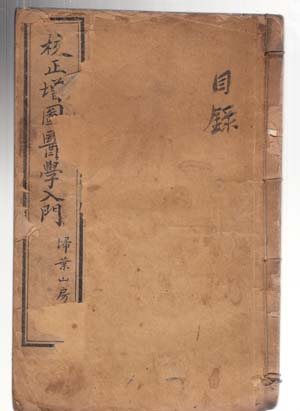 目錄
校正增圖醫學入門
掃葉山房